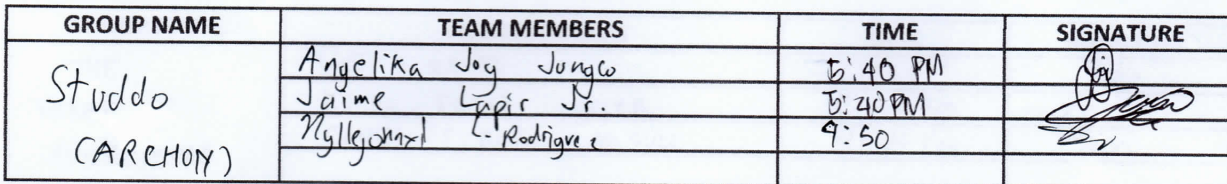 GROUP NAME TEAM MEMBERS TIME SIGNATURE
Studdo
(ARCHON)
Angelika Joy Jungco 5:40 PM
Jaime Lapis Jr. 5:40 PM
L. Rodriguez 9:50